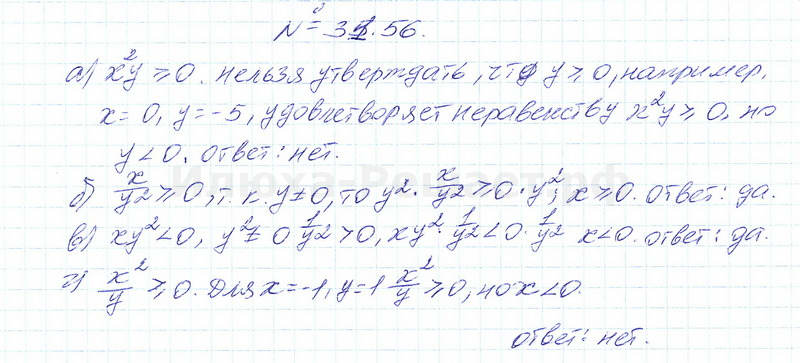 № 31.56.
а) x²y ≥ 0. нельзя утверждать, что y ≥ 0, например,
x = 0, y = -5, удовлетворяет неравенству x²y ≥ 0, но
y < 0. ответ: нет.
б) x/y² ≥ 0, т.к. y ≠ 0, то y² · x/y² ≥ 0 · y²; x ≥ 0. ответ: да.
в) xy² < 0, y² ≠ 0 1/y² > 0, xy² · 1/y² < 0 · 1/y² x < 0. ответ: да.
г) x²/y ≥ 0. Для x = -1, y = 1 x²/y ≥ 0, но x < 0.
ответ: нет.